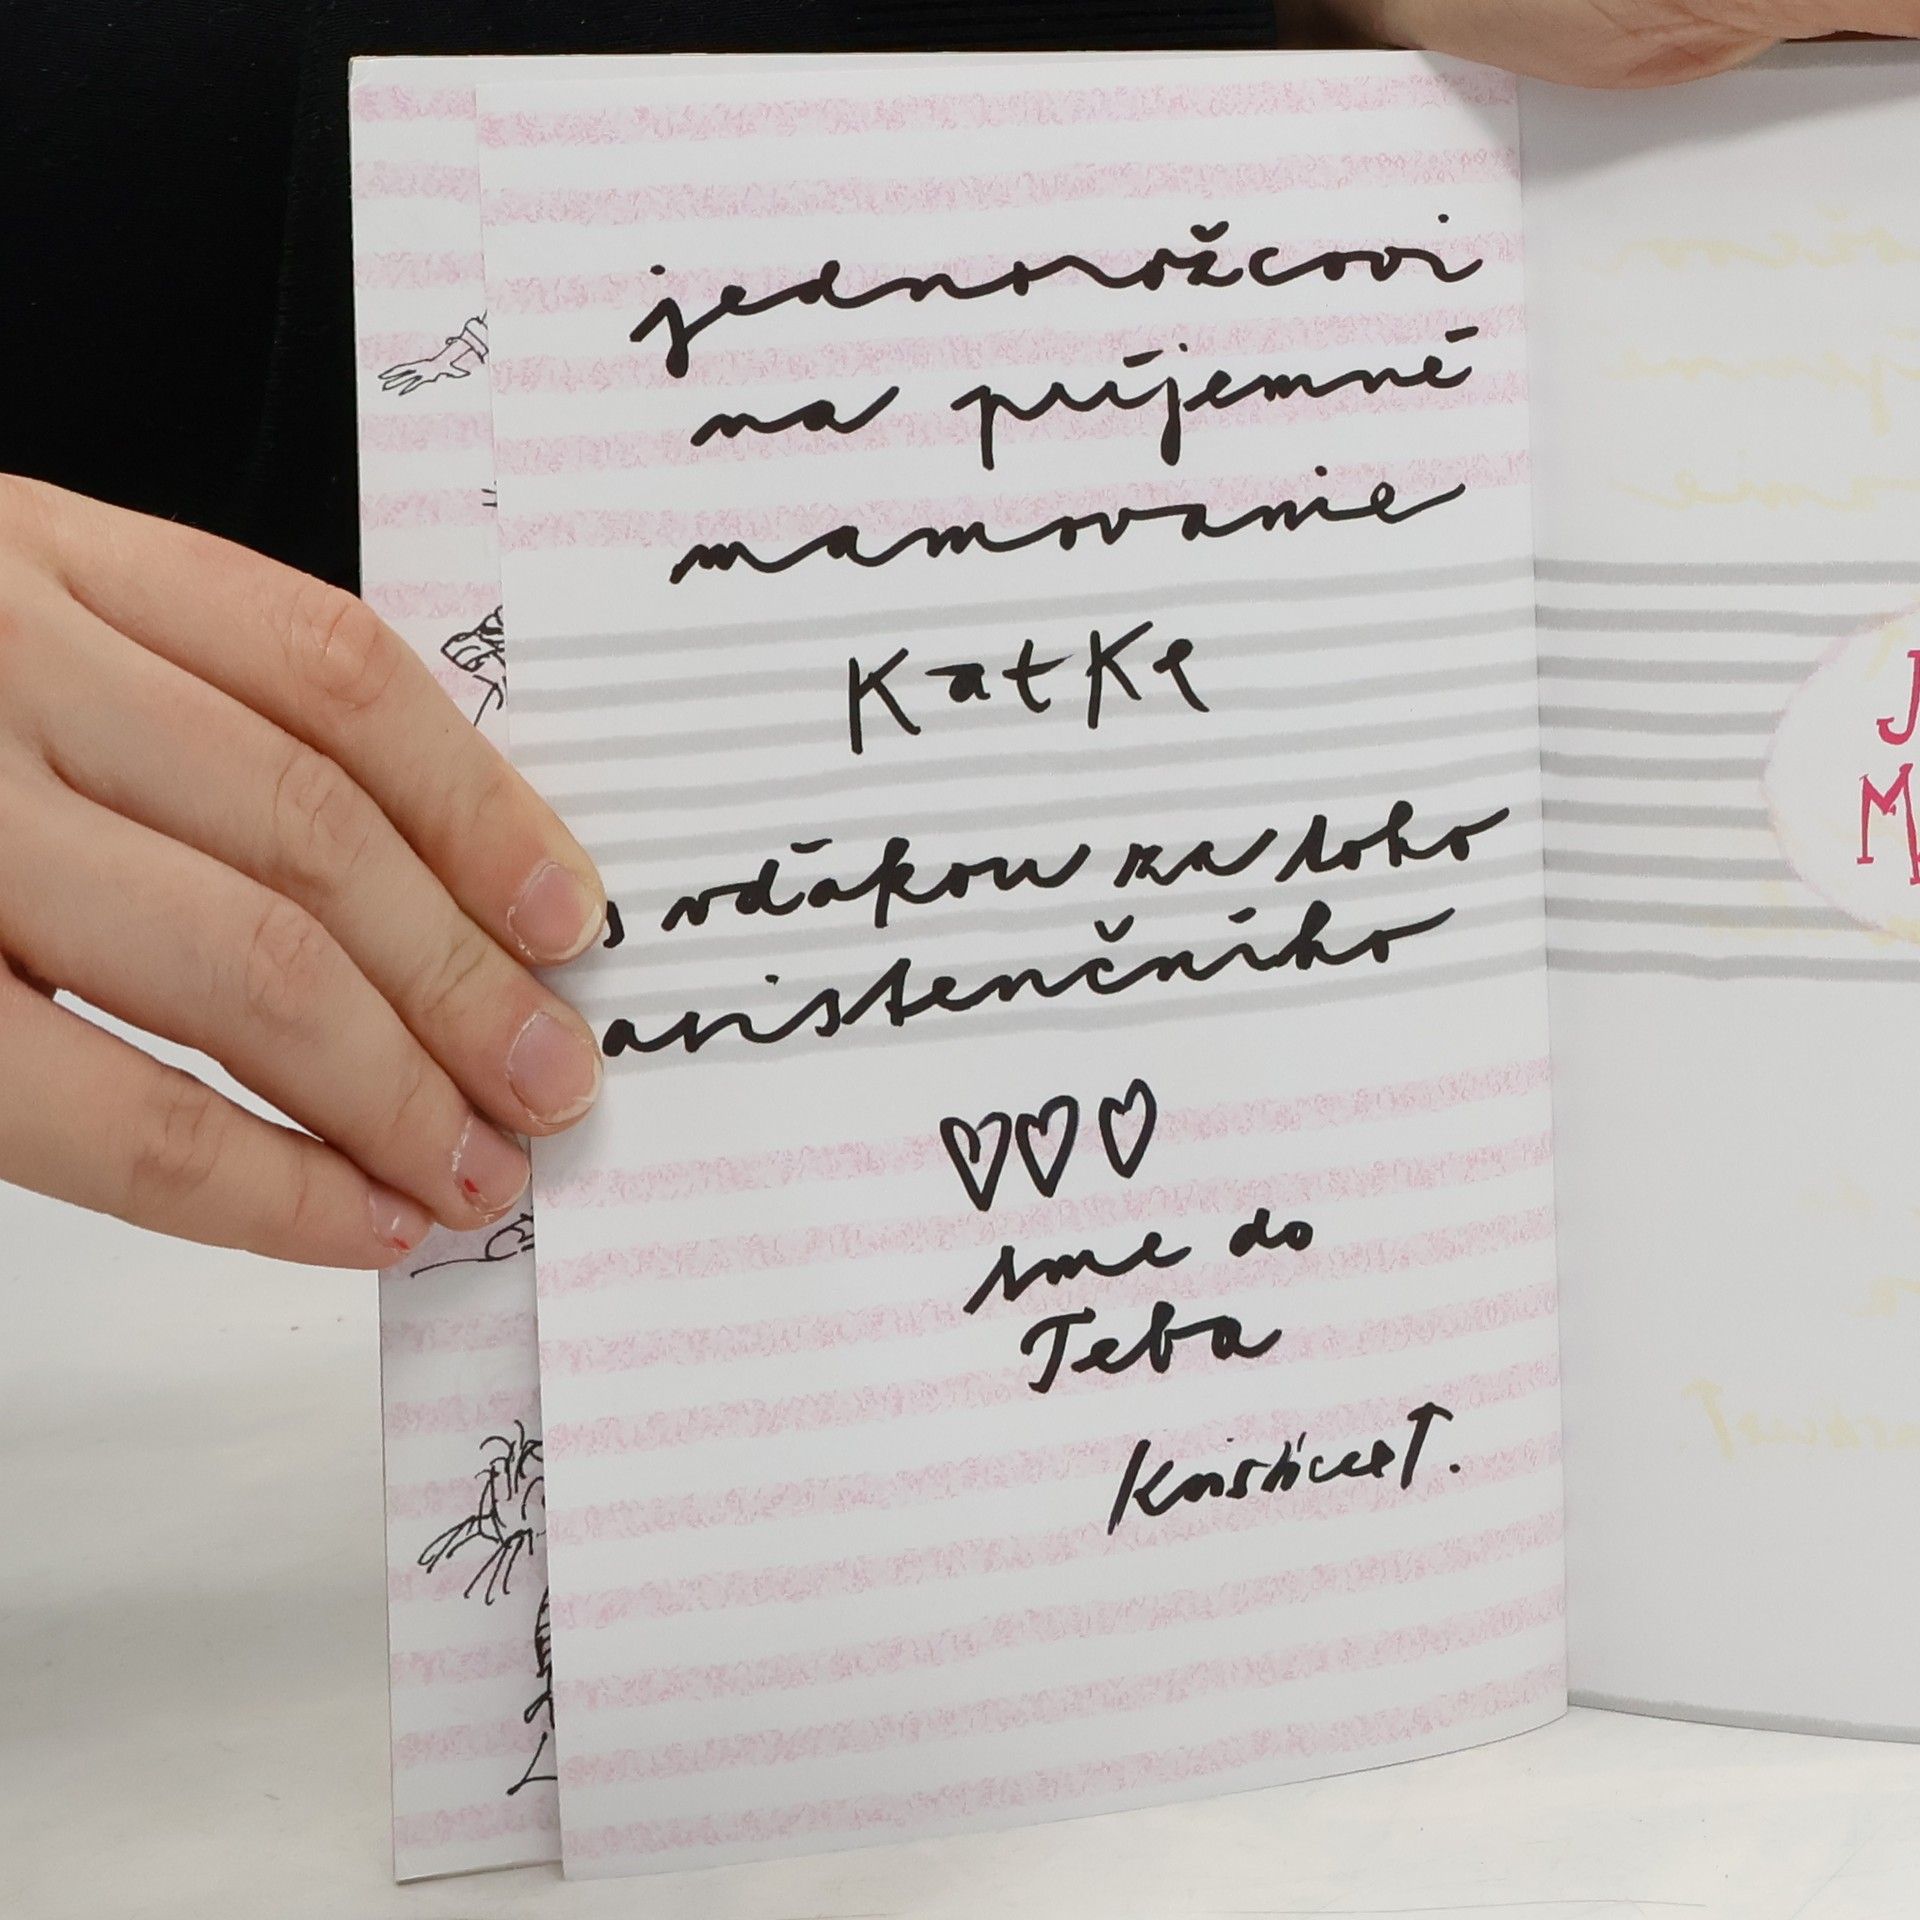 jednorožcovi
na príjemné
mamovanie
Katke
s vďakou za toho
asistenčního
sme do
Teba
J
M